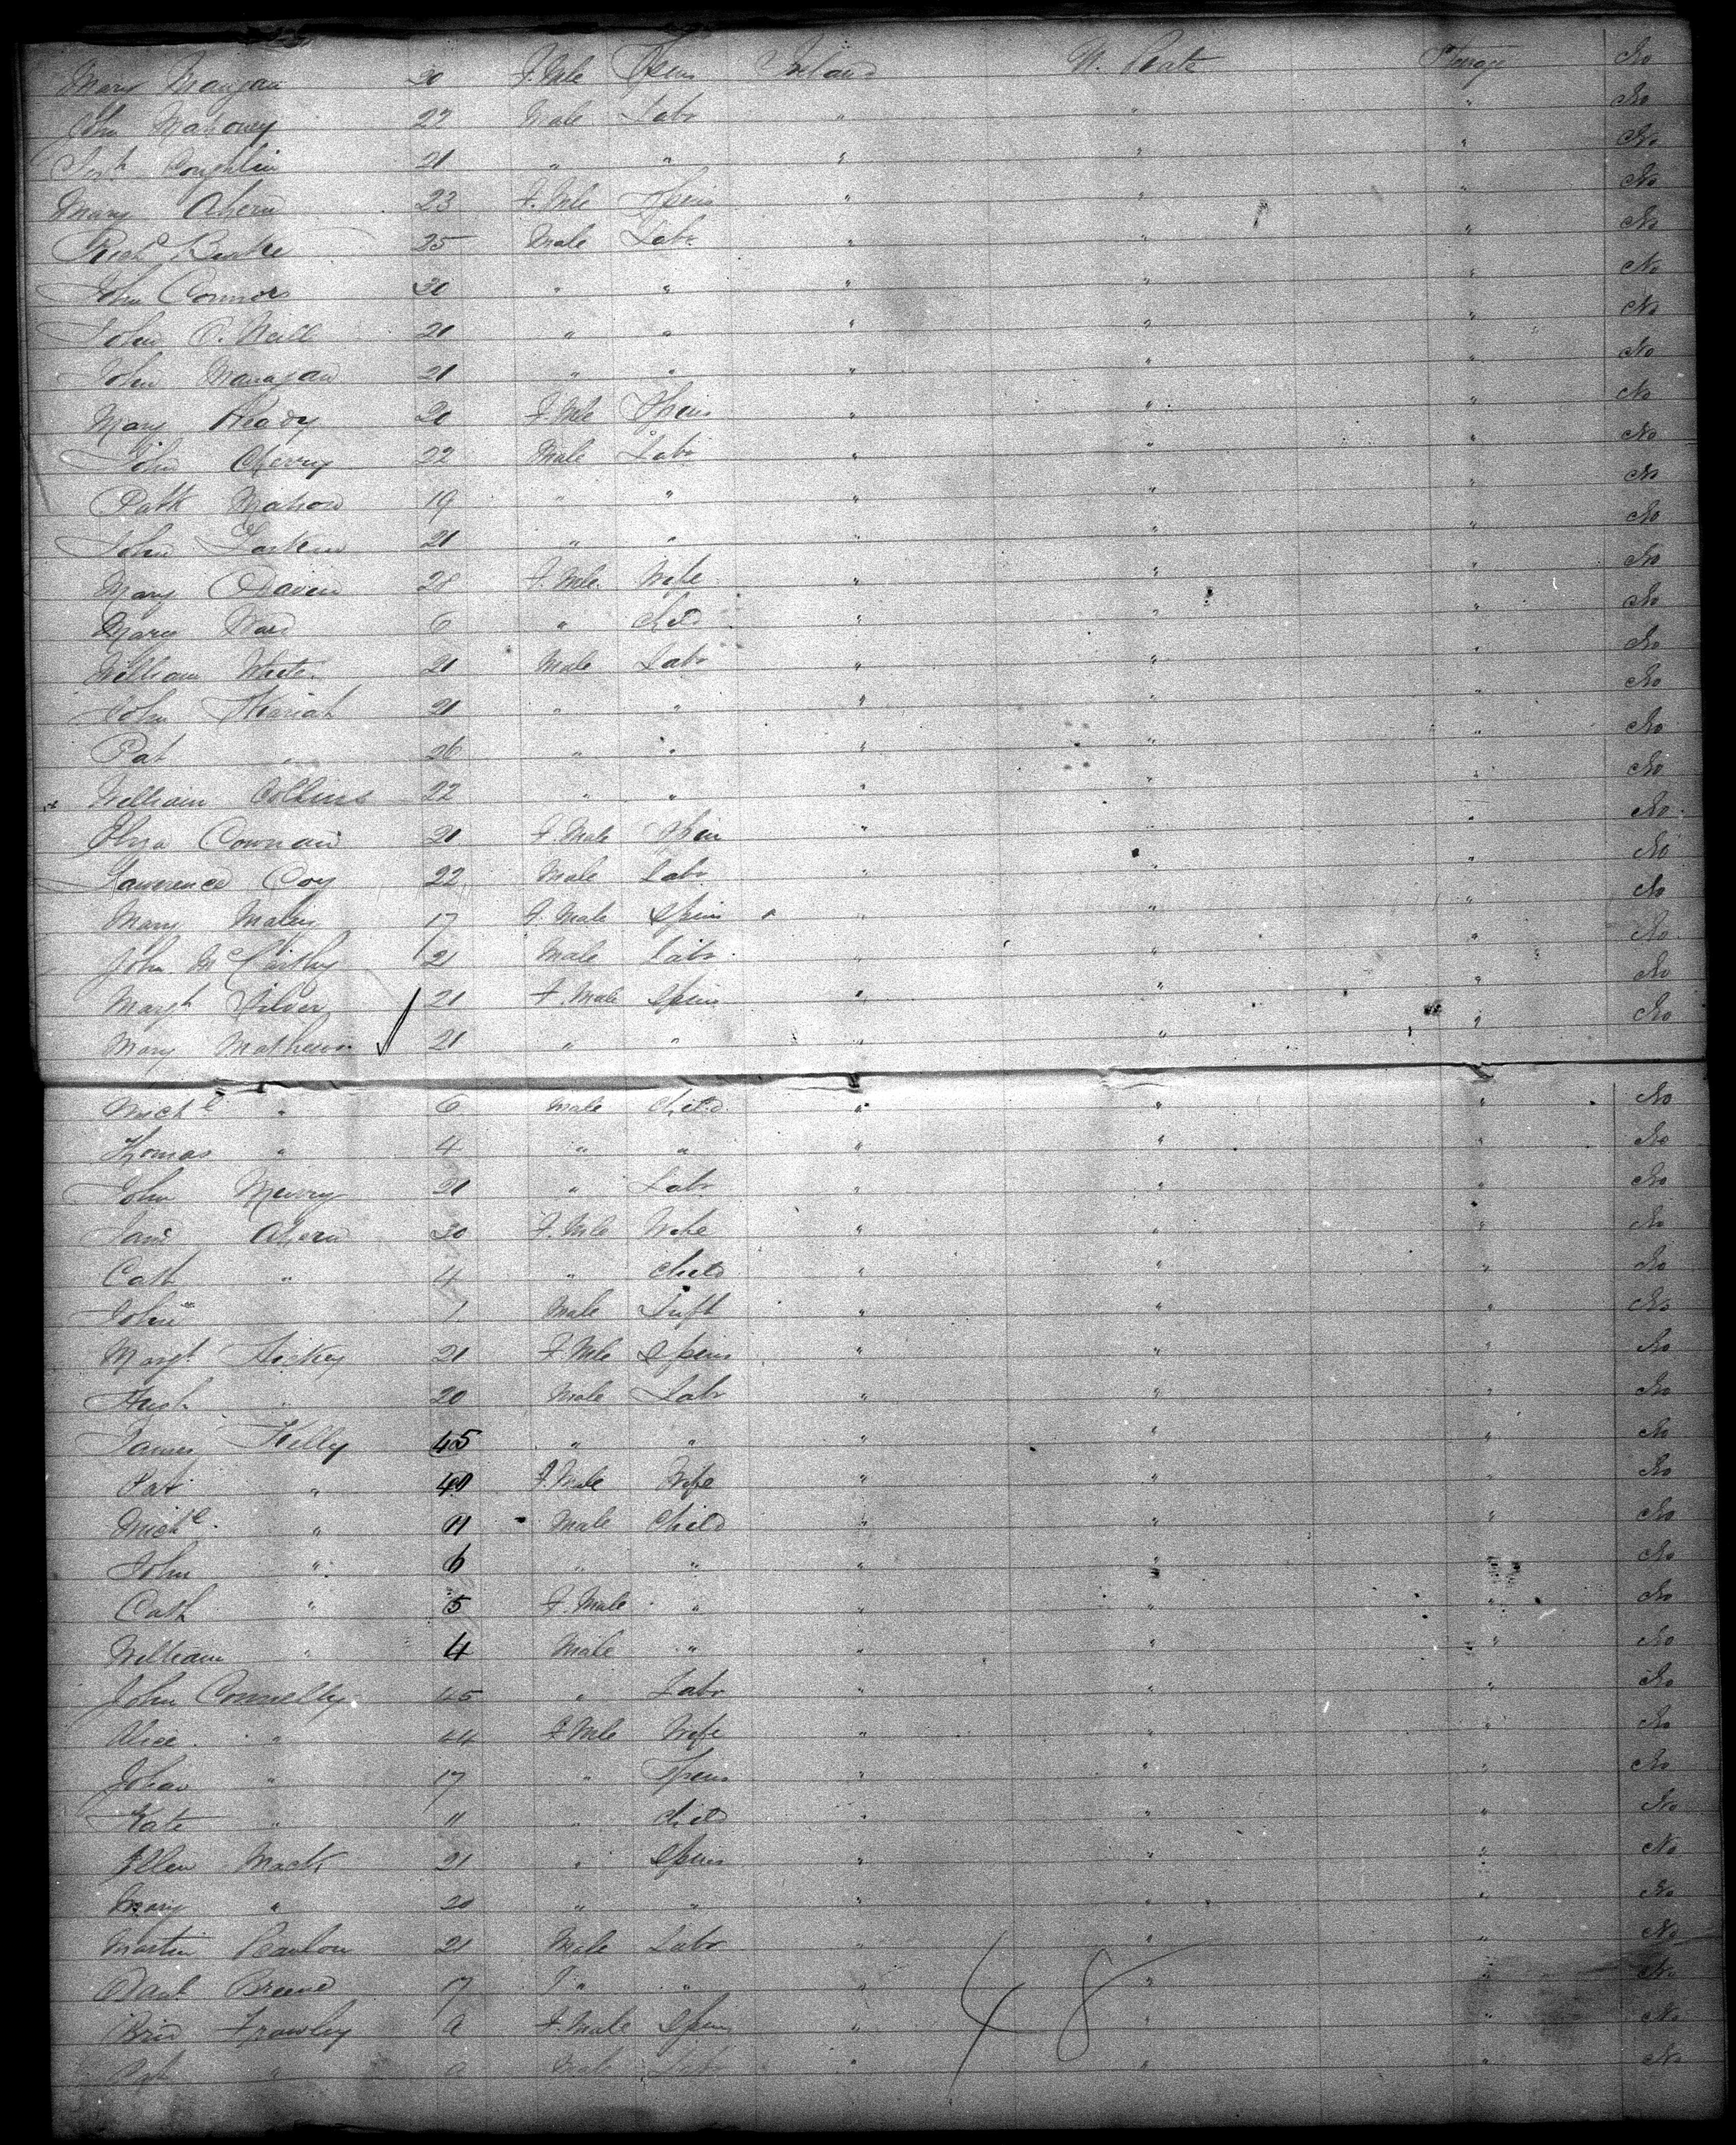 Mary Mangan 20 F. Mle Spins Ireland U. States Steerage No
John Mahoney 22 Male Labr " " " No
Coughlin 21 " " " " " No
Mary Ahern 23 F. Mle Spins " " " No
Richd Burke 25 Male Labr " " " No
John Connors 30 " " " " " No
John O. Neill 21 " " " " " No
John Managan 21 " " " " " No
Mary Ready 20 F. Mle Spins " " " No
John Cherry 22 Male Labr " " " No
Patk Mahon 19 " " " " " No
John Larkin 21 " " " " " No
Mary 28 F. Mle Wife " " " No
Mary Ward 6 " Child " " " No
William White 21 Male Labr " " " No
John 21 " " " " " No
Pat " 26 " " " " " No
William Collins 22 " " " " " No
Eliza Cownan 21 F. Male Spin " " " No
Lawerence Coy 22 Male Labr " " " No
Mary Maley 17 F. Male Spins " " " No
John McCarthy 21 Male Labr " " " No
Margt Silver 21 F. Male Spins " " " No
Mary Mathews 21 " " " " " No
Michl " 6 Male Child " " " No
Thomas " 4 " " " " " No
John Merry 21 " Labr " " " No
Ahern 30 F. Mle Wife " " " No
Cath " 4 " Child " " " No
John " 1 Male Inft " " " No
Margt Hickey 21 F. Mle Spins " " " No
Hugh " 20 Male Labr " " " No
James Kelly 45 " " " " " No
Pat " 40 F. Male Wife " " " No
Michl " 11 Male Child " " " No
John " 6 " " " " " No
Cath " 5 F. Male " " " " No
William " 4 Male " " " " No
John Connelly 45 " Labr " " " No
Alice " 44 F. Mle Wife " " " No
Johan " 17 " Spins " " " No
Kate " 11 " Child " " " No
Ellen Mack 21 " Spins " " " No
Mary " 20 " " " " " No
Martin Scanlon 21 Male Labr " " " No
Danl Breene 17 " " " " " No
Brid Frawley F. Male Spins " " " No
" Male Labr " " " No
48